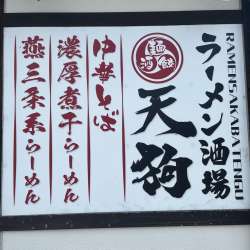 RAMENSAKABA TENGU
ラーメン酒場
天狗
麺
酒
餃
中華そば
濃厚煮干らーめん
燕三条系らーめん